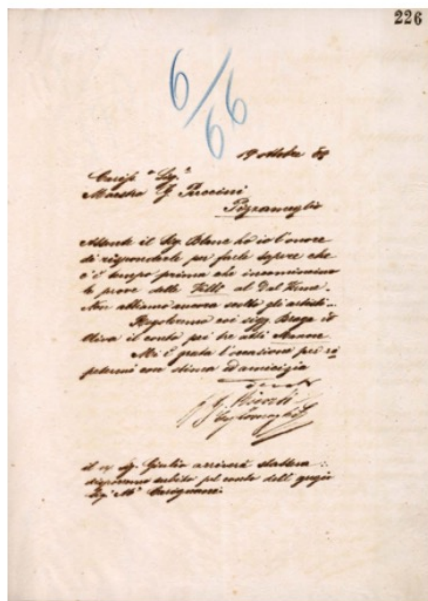 226
6/66
19 ottobre 88
Maestro G. Puccini
Pizzameglio
Assente il Sig. Blanc ho io l'onore
di risponderle per farle sapere che
c'è tempo prima che incomincino
le prove delle Villi al Dal Verme.
Non abbiamo ancora scelto gli artisti...
coi sigg. Braga e
Oliva il conto pei tre atti Manon
Mi è grata l'occasione per ri
petermi con stima ed amicizia
G. Ricordi
il Sig. Giulio arriverà stassera:
disporremo subito pel conto dell'egregio
Sig. Mo Carignani.